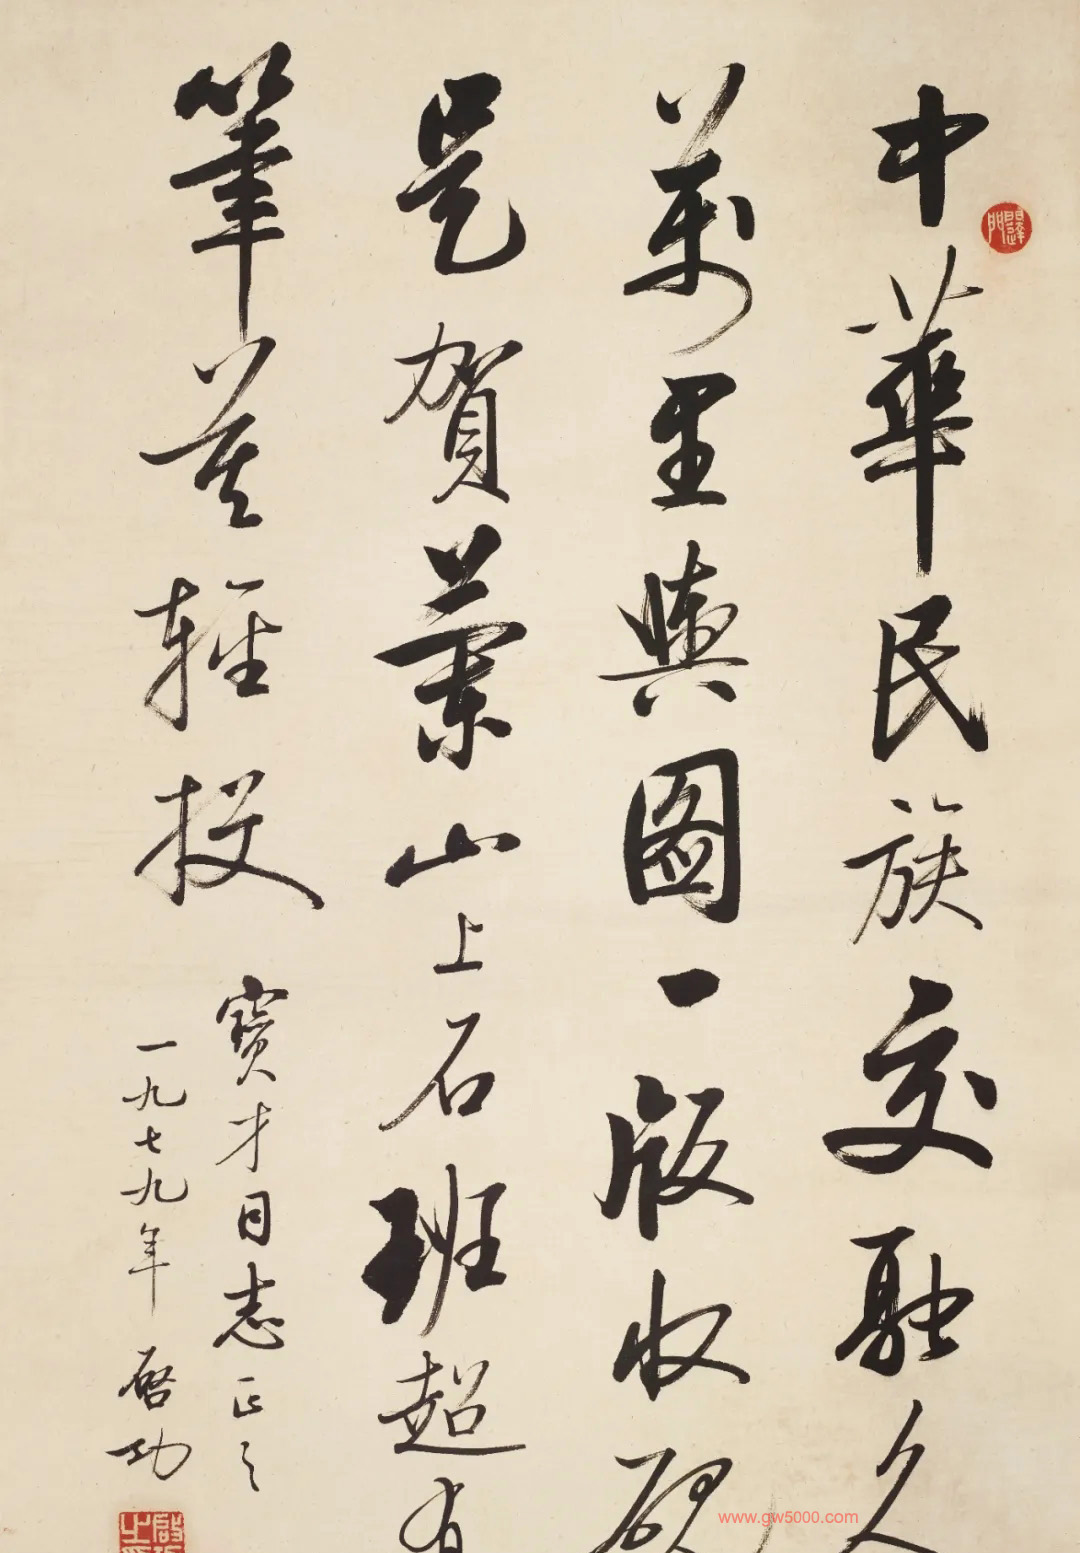 中華民族交融久
萬里輿圖一版收硯
是賀蘭山上石班超有
筆莫輕投
寶才同志正之
一九七九年 啓功
www.gw5000.com